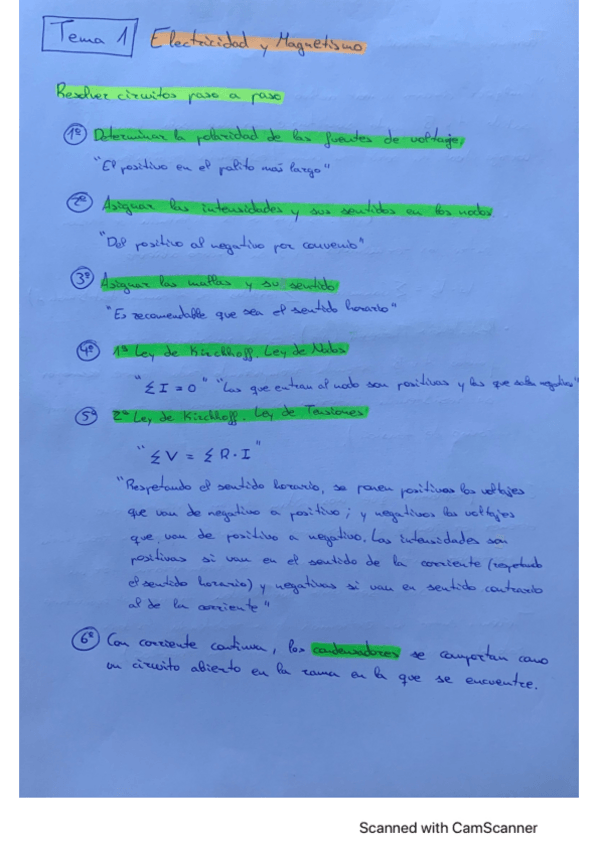 Tema 1 Electricidad y Magnetismo
Resolver circuitos paso a paso
1º Determinar la polaridad de las fuentes de voltaje.
"El positivo en el palito más largo"
2º Asignar las intensidades y sus sentidos en los nodos.
"Del positivo al negativo por convenio"
3º Asignar las mallas y su sentido
"Es recomendable que sea el sentido horario"
4º 1ª Ley de Kirchhoff. Ley de Nodos
"Σ I = 0" "Las que entran al nodo son positivas y las que salen negativas"
5º 2ª Ley de Kirchhoff. Ley de Tensiones
"Σ V = Σ R · I"
"Respetando el sentido horario, se ponen positivos los voltajes
que van de negativo a positivo; y negativos los voltajes
que van de positivo a negativo. Las intensidades son
positivas si van en el sentido de la corriente (respetando
el sentido horario) y negativas si van en sentido contrario
al de la corriente"
6º Con corriente continua, los condensadores se comportan como
un circuito abierto en la rama en la que se encuentre.
Scanned with CamScanner